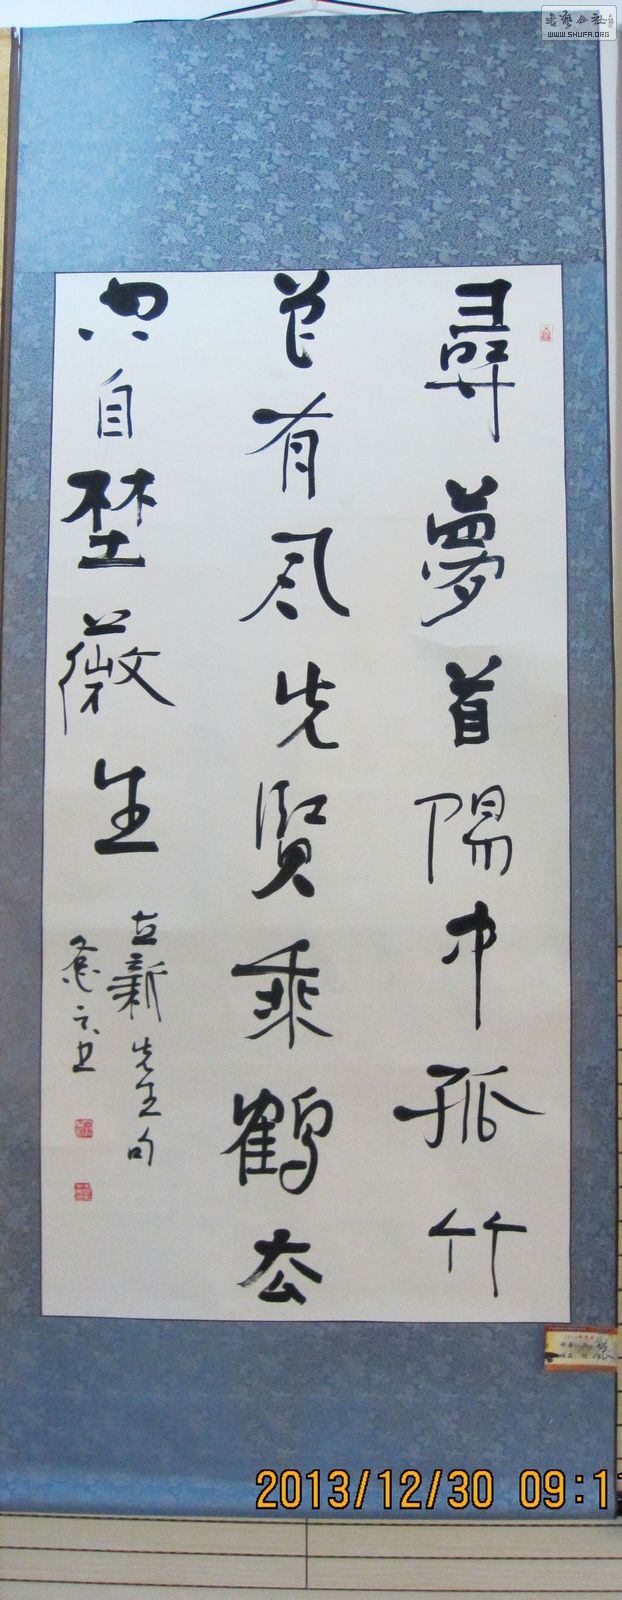 尋夢首陽中孤竹
有風先賢乘鶴去
自埜薇生
立新先生句
书
WWW.SHUFA.ORG
2013/12/30 09:11